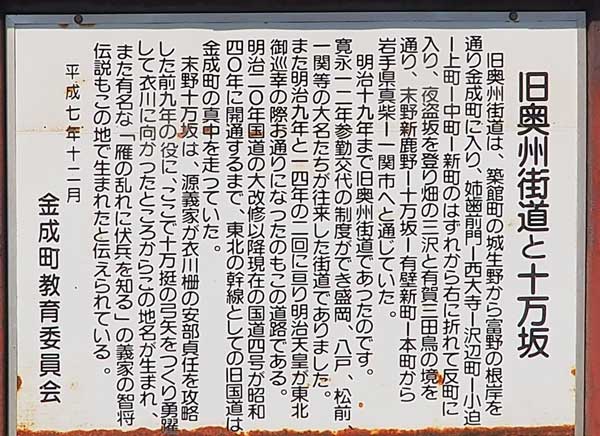 旧奥州街道と十万坂
旧奥州街道は、築館町の城生野から富野の根岸を
通り金成町に入り、姉歯前門ー西大寺ー沢辺町ー小迫
ー上町ー中町ー新町のはずれから右に折れて反町に
入り、夜盗坂を登り畑の三沢と有賀三田鳥の境を
通り、末野新鹿野ー十万坂ー有壁新町ー本町から
岩手県真柴ー一関市へと通じていた。
明治十九年まで旧奥州街道であつたのです。
寛永一二年参勤交代の制度ができ盛岡、八戸、松前、
一関等の大名たちが往来した街道でありました。
また明治九年と一四年の二回に亘り明治天皇が東北
御巡幸の際お通りになつたのもこの道路である。
明治二〇年国道の大改修以降現在の国道四号が昭和
四〇年に開通するまで、東北の幹線としての旧国道は
金成町の真中を走つていた。
末野十万坂は、源義家が衣川柵の安部貞任を攻略
した前九年の役に、ここで十万挺の弓矢をつくり勇躍
して衣川に向かつたところからこの地名が生まれ、
また有名な「雁の乱れに伏兵を知る」の義家の智将
伝説もこの地で生まれたと伝えられている。
平成七年十二月
金成町教育委員会